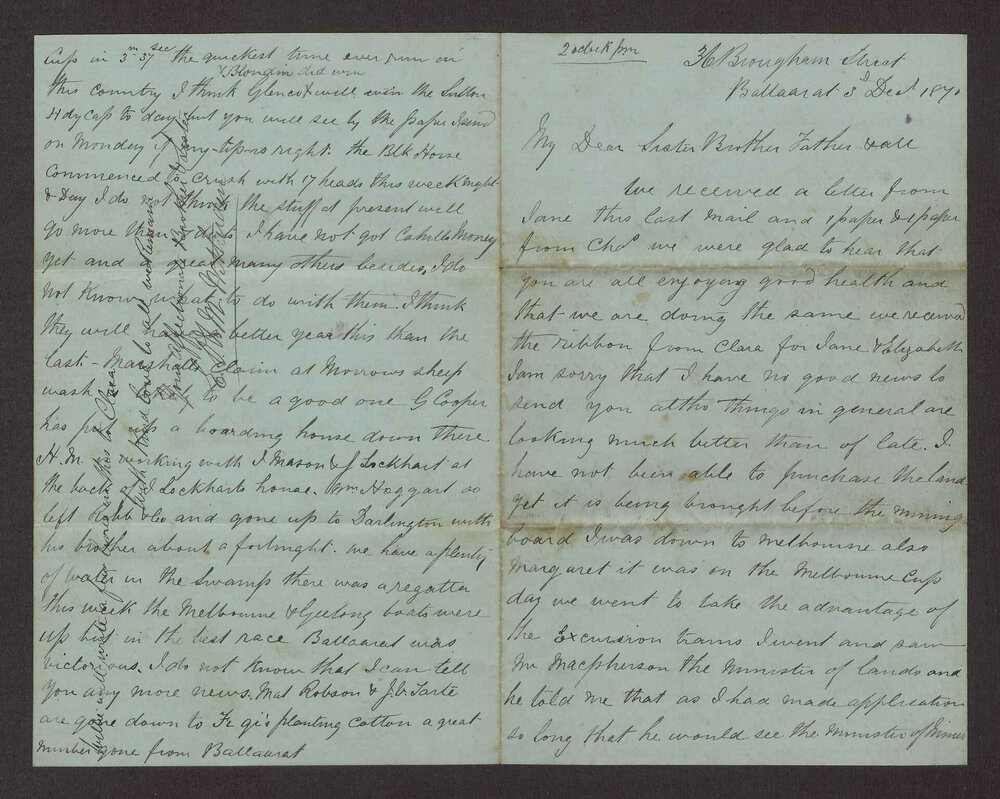 2 oclock pm
36 Brougham Street
Ballaarat 3 Dec 1870
My Dear Sister Brother Father & all
We received a letter from
Jane this last mail and 1 paper & 1 paper
from Chas we were glad to hear that
you are all enjoying good health and
that we are doing the same we received
the ribbon from Clara for Jane & Elizabeth
I am sorry that I have no good news to
send you altho things in general are
looking much better than of late. I
have not been able to purchase the land
yet it is being brought before the mining
board I was down to Melbourne also
Margaret it was on the Melbourne Cup
day we went to take the advantage of
the Excursion trains I went and saw
Mr Macpherson the Minister of lands and
he told me that as I had made application
so long that he would see the Minister of Mines
Cup in 3m 37 sec the quickest time ever run in
X Blondin did win
this country I think Glencoe X will win the
Hdy Cap to day but you will see by the paper I send
on Monday if my tip is right. the Blk Horse
Commenced to crush with 17 heads this week night
& Day I do not think the stuff at present will
go more than I have not got Cahills Money
yet and a great many others besides, I do
not know what to do with them. I think
they will have a better year this than the
last - Marshalls Claim at Morrows sheep
wash to be a good one G Cooper
has put up a boarding house down there
H. M is working with J Mason & J Lockhart at
the back of J Lockharts house. Wm Hoggart as
left Robb & Co and gone up to Darlington with
his brother about a fortnight. we have a plenty
of water in the Swamp there was a regatta
this week the Melbourne & Geelong boats were
up but in the best race Ballaarat was
victorious. I do not know that I can tell
you any more news. Mat Robson & J. W. Tarte
are gone down to Fegi's planting Cotton a great
number gone from Ballaarat
with kind love to all we Remain
your Affectionate Brother & Sister